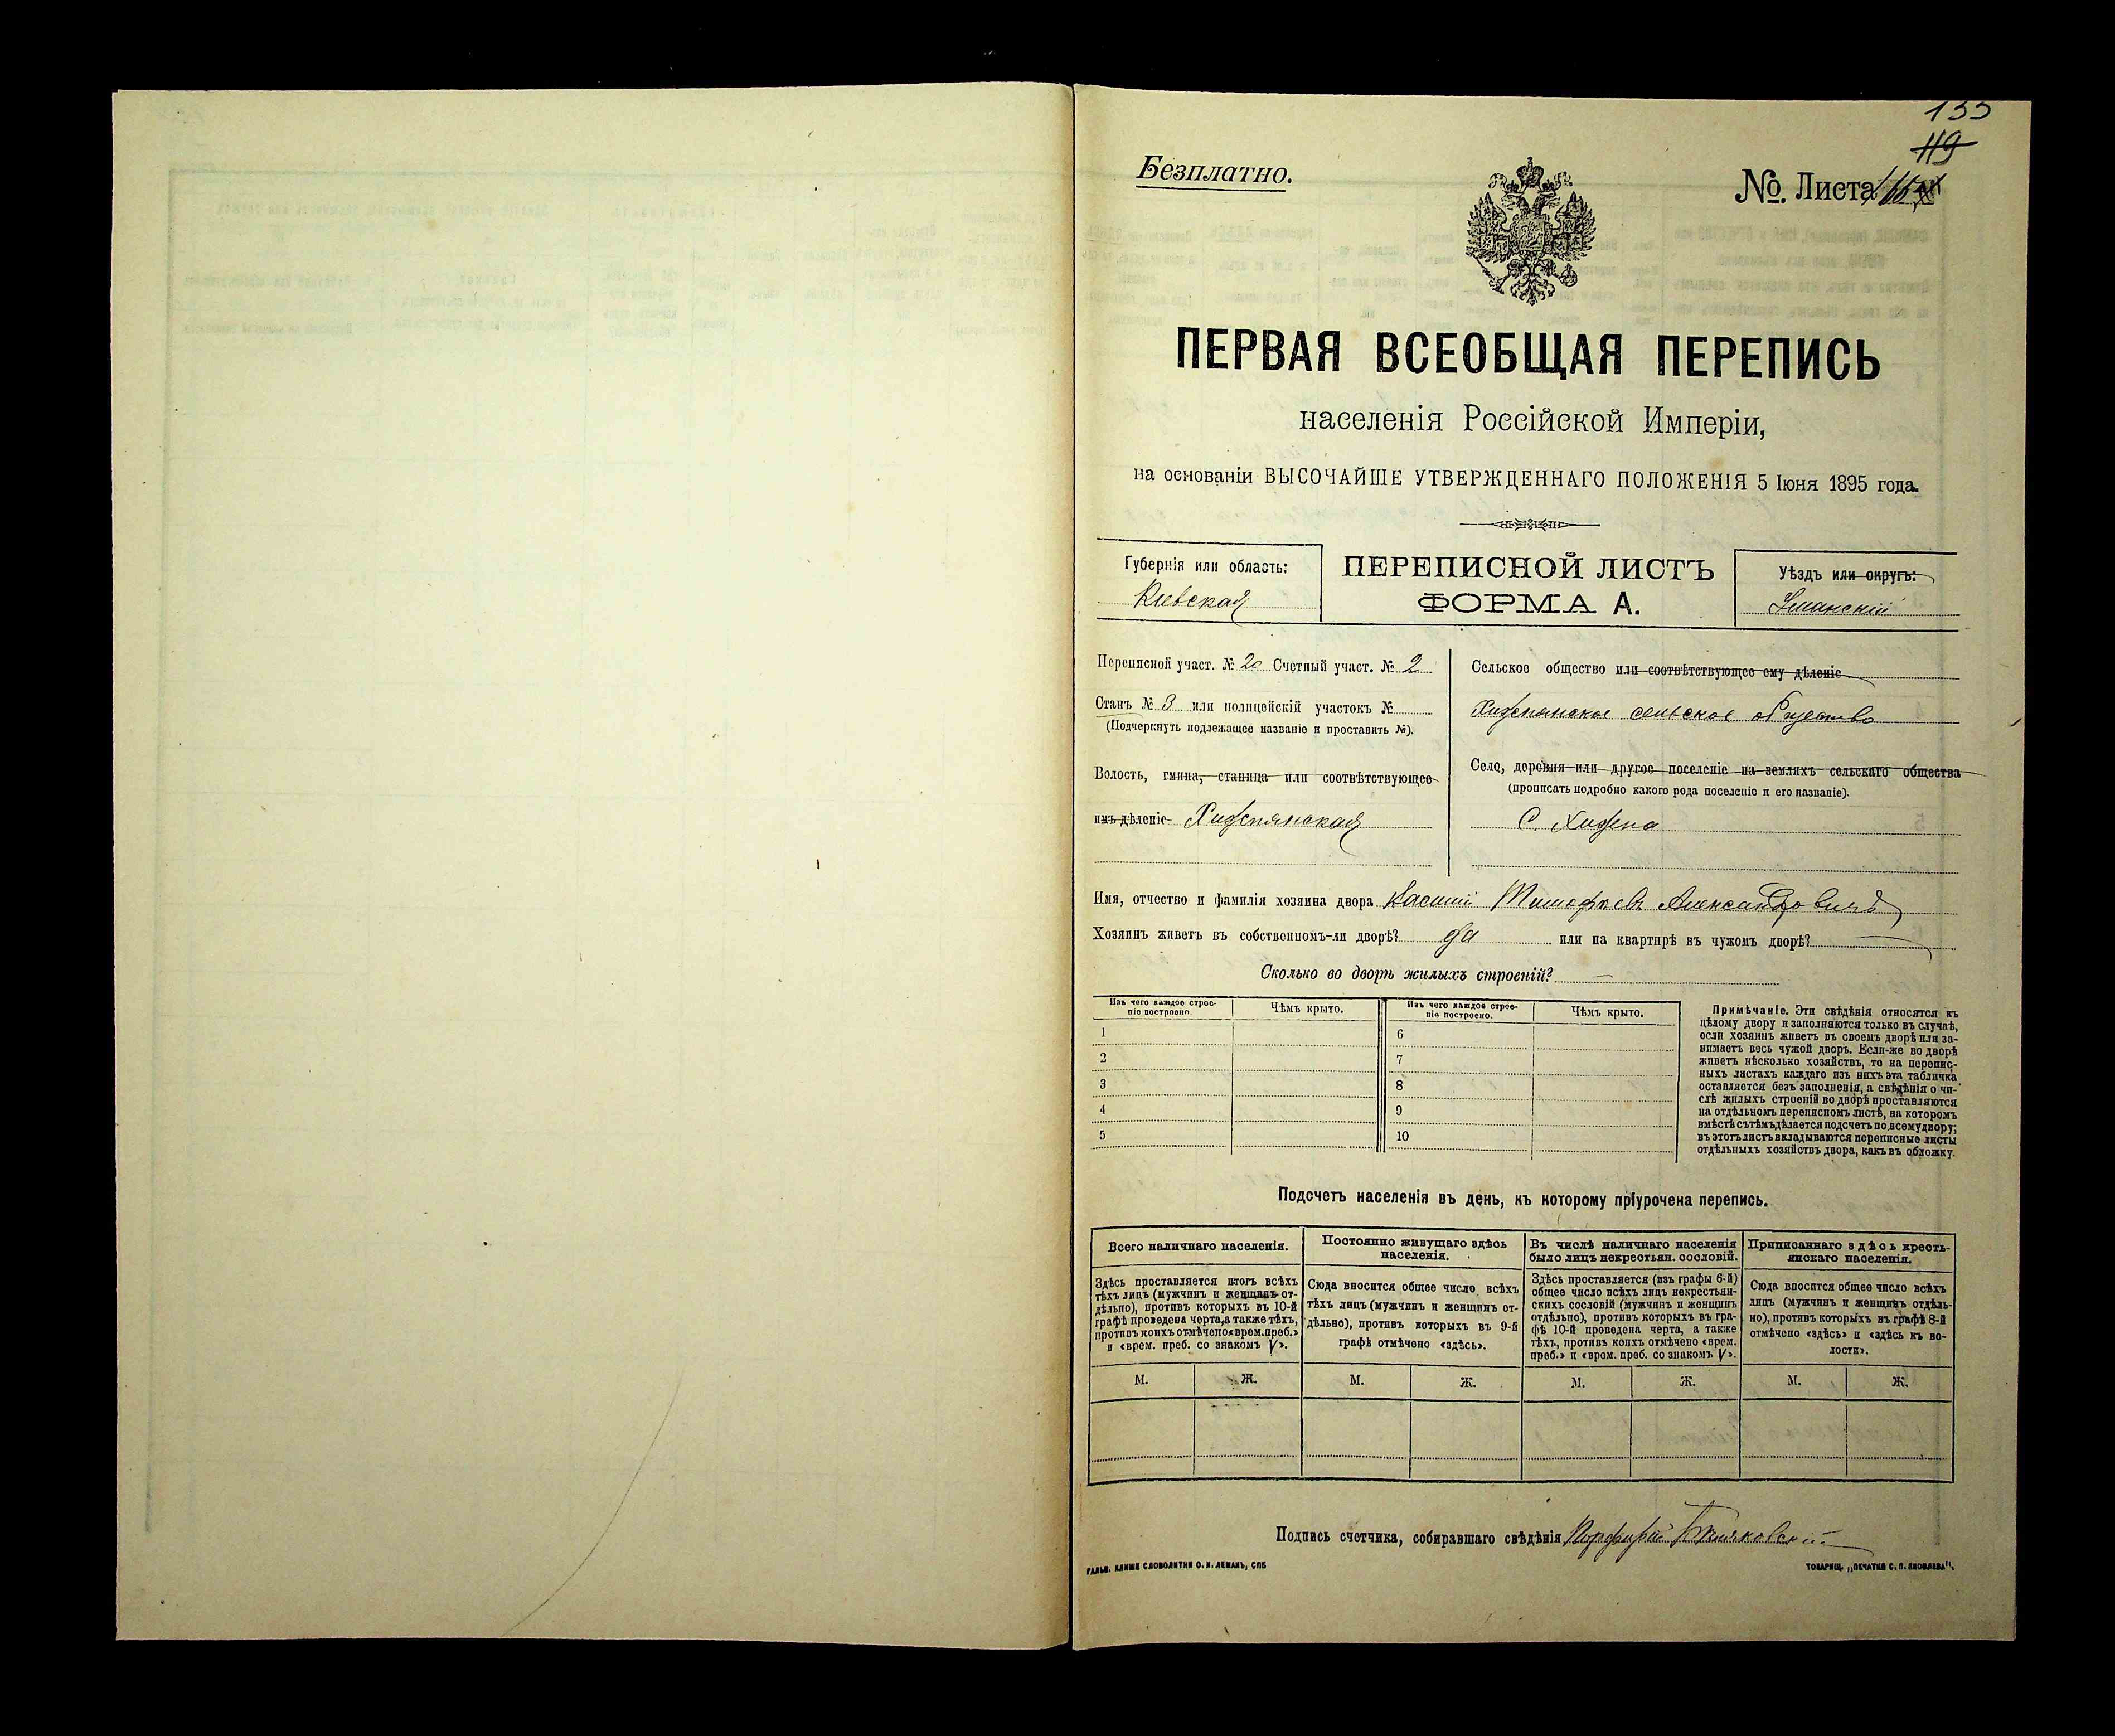 119
Безплатно.
No. Листа
ПЕРВАЯ ВСЕОБЩАЯ ПЕРЕПИСЬ
населенія Россійской Имперіи,
на основаніи ВЫСОЧАЙШЕ УТВЕРЖДЕННАГО ПОЛОЖЕНІЯ 5 Іюня 1895 года.
Губернія или область:
Кіевская
ПЕРЕПИСНОЙ ЛИСТЪ
ФОРМА А.
Уѣздъ или округъ:
Уманскій
Переписной участ. № 20 Счетный участ. № 2
Станъ № 3 или полицейскій участокъ №
(Подчеркнуть подлежащее названіе и проставить №).
Волость, гмина, станица или соотвѣтствующее
имъ дѣленіе
Сельское общество или соотвѣтствующее ему дѣленіе
сельское общество
Село, деревня или другое поселеніе на земляхъ сельскаго общества
(прописать подробно какого рода поселеніе и его названіе).
С. Хижна
Имя, отчество и фамилія хозяина двора Касіянъ Тимофѣевъ Александровичъ
Хозяинъ живетъ въ собственномъ-ли дворѣ? да или на квартирѣ въ чужомъ дворѣ? —
Сколько во дворѣ жилыхъ строеній? —
Изъ чего каждое строе-
ніе построено.
Чѣмъ крыто.
Изъ чего каждое строе-
ніе построено.
Чѣмъ крыто.
1
6
2
7
3
8
4
9
5
10
Примѣчаніе. Эти свѣдѣнія относятся къ
цѣлому двору и заполняются только въ случаѣ,
если хозяинъ живетъ въ своемъ дворѣ или за-
нимаетъ весь чужой дворъ. Если-же во дворѣ
живетъ нѣсколько хозяйствъ, то на перепис-
ныхъ листахъ каждаго изъ нихъ эта табличка
оставляется безъ заполненія, а свѣдѣнія о чи-
слѣ жилыхъ строеній во дворѣ проставляются
на отдѣльномъ переписномъ листѣ, на которомъ
вмѣстѣ съ тѣмъ дѣлается подсчетъ по всему двору;
въ этотъ листъ вкладываются переписные листы
отдѣльныхъ хозяйствъ двора, какъ въ обложку.
Подсчетъ населенія въ день, къ которому пріурочена перепись.
Всего наличнаго населенія.
Здѣсь проставляется итогъ всѣхъ
тѣхъ лицъ (мужчинъ и женщинъ от-
дѣльно), противъ которыхъ въ 10-й
графѣ проведена черта, а также тѣхъ,
противъ коихъ отмѣчено «врем. преб.»
и «врем. преб. со знакомъ V».
Постоянно живущаго здѣсь
населенія.
Сюда вносится общее число всѣхъ
тѣхъ лицъ (мужчинъ и женщинъ от-
дѣльно), противъ которыхъ въ 9-й
графѣ отмѣчено «здѣсь».
Въ числѣ наличнаго населенія
было лицъ некрестьян. сословій.
Здѣсь проставляется (изъ графы 6-й)
общее число всѣхъ лицъ некрестьян-
скихъ сословій (мужчинъ и женщинъ
отдѣльно), противъ которыхъ въ гра-
фѣ 10-й проведена черта, а также
тѣхъ, противъ коихъ отмѣчено «врем.
преб.» и «врем. преб. со знакомъ V».
Приписаннаго здѣсь кресть-
янскаго населенія.
Сюда вносится общее число всѣхъ
лицъ (мужчинъ и женщинъ отдѣль-
но), противъ которыхъ въ графѣ 8-й
отмѣчено «здѣсь» и «здѣсь къ во-
лости».
М. Ж. М. Ж. М. Ж. М. Ж.
Подпись счетчика, собиравшаго свѣдѣнія Порфирій
ГАЛЬВ. КЛИШЕ СЛОВОЛИТНИ О. И. ЛЕМАНЪ, СПБ
ТОВАРИЩ. „ПЕЧАТНЯ С. П. ЯКОВЛЕВА“.